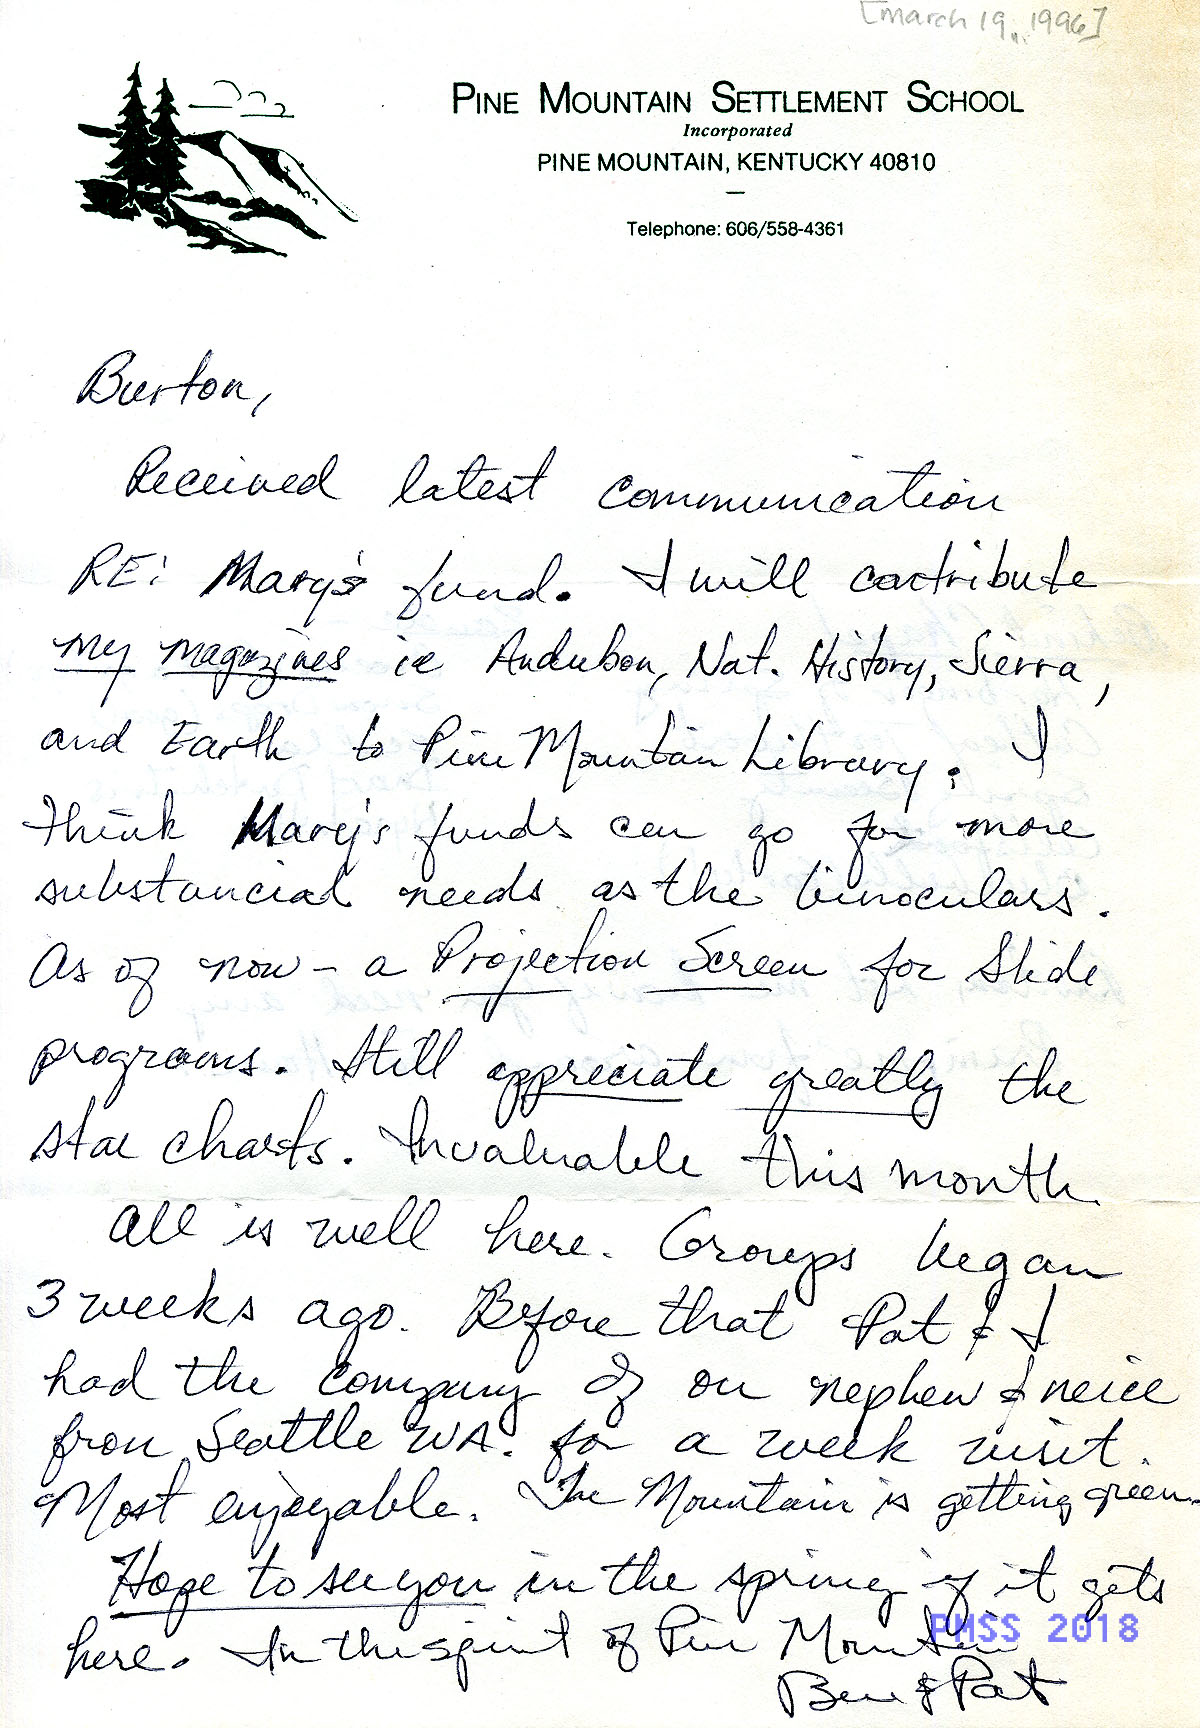 [March 19, 1996]
PINE MOUNTAIN SETTLEMENT SCHOOL
Incorporated
PINE MOUNTAIN, KENTUCKY 40810
Telephone: 606/558-4361
Burton,
Received latest communication
RE: Mary's fund. I will contribute
my magazines ie Audubon, Nat. History, Sierra,
and Earth to Pine Mountain Library. I
think Mary's funds can go for more
substancial needs as the binoculars.
As of now - a Projection Screen for Slide
programs. Still appreciate greatly the
star charts. Invaluable this month.
All is well here. Groups began
3 weeks ago. Before that Pat & I
had the company of our nephew & neice
from Seattle WA. for a week visit.
Most enjoyable. The Mountain is getting green.
Hope to see you in the spring if it gets
here. In the spirit of Pine Mountain
Ben & Pat
PMSS 2018